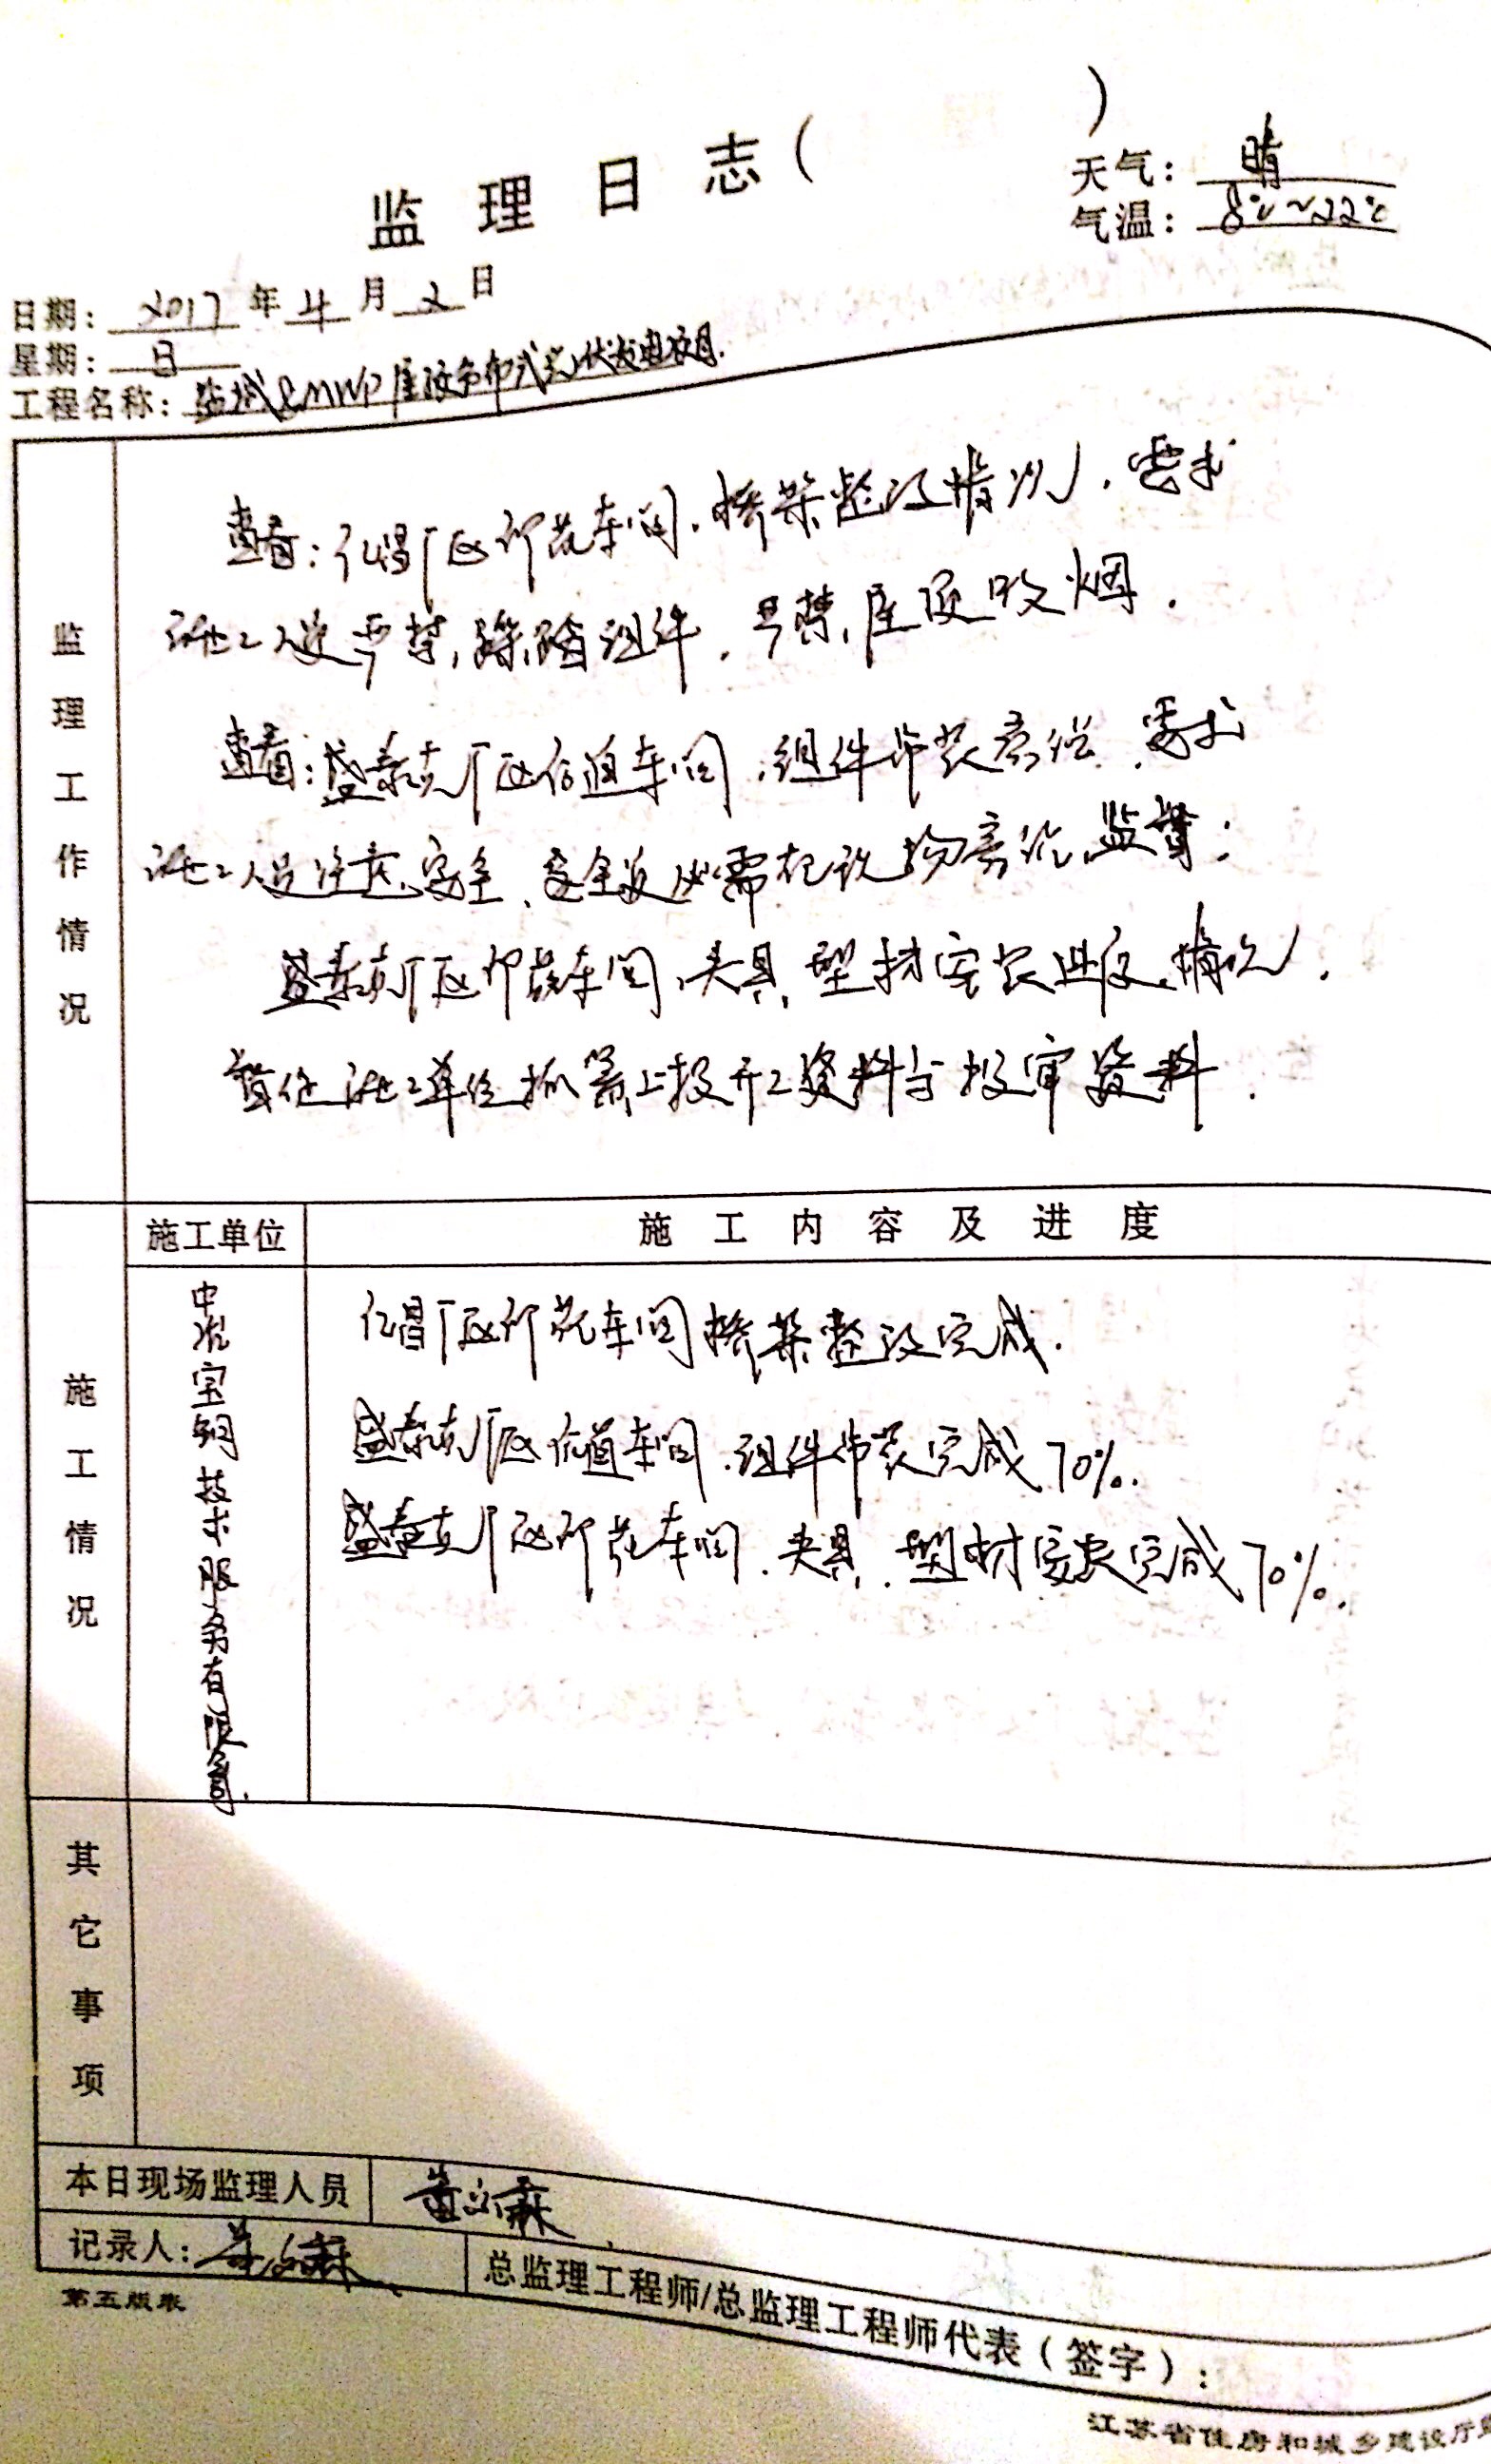 监理日志( )
天气: 晴
气温: 8℃~22℃
日期: 2017年4月2日
星期: 日
工程名称: 盐城2MWP屋顶分布式光伏发电项目.
监理工作情况
查看:亿昌厂区印花车间.桥架整改情况.要求
施工人员严禁踩踏组件.严禁屋顶吸烟.
查看:盛泰克厂区 车间.组件安装 .要求
施工人员注意安全、安全员必需在现场 监督;
盛泰克厂区印花车间、夹具、型材安装进度情况.
督促施工单位抓紧上报开工资料与报审资料.
施工情况
施工单位
施工内容及进度
中冶宝钢技术服务有限公司.
亿昌厂区印花车间桥架整改完成.
盛泰克厂区 车间.组件安装完成70%.
盛泰克厂区印花车间.夹具.型材安装完成70%.
其它事项
本日现场监理人员
记录人:
总监理工程师/总监理工程师代表(签字):
第五版表
江苏省住房和城乡建设厅监